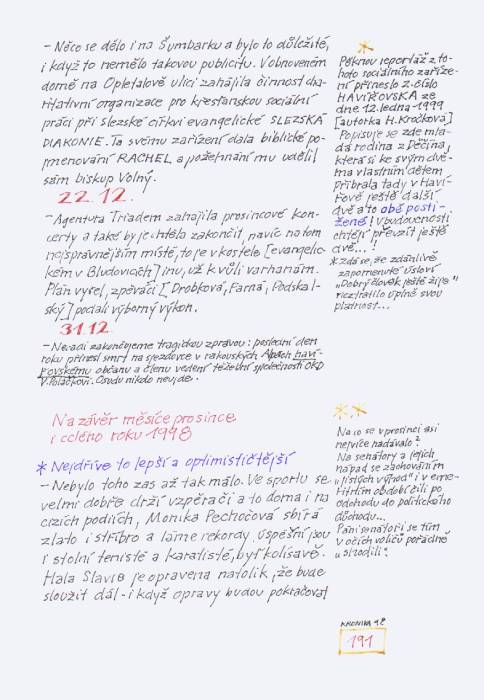 - Něco se dělo i na Šumbarku a bylo to důležité,
i když to nemělo takovou publicitu. V obnoveném
domě na Opletalově ulici zahájila činnost cha-
ritativní organizace pro křesťanskou sociální
práci při Slezské církvi evangelické SLEZSKÁ
DIAKONIE. Ta svému zařízení dala biblické po-
jmenování RACHEL a požehnání mu udělil
sám biskup Volný.
22.12.
- Agentura Triadem zahájila prosincové kon-
certy a také by je chtěla zakončit, navíc na tom
nejsprávnějším místě, to je v kostele [evangelic-
kém v Bludovicích] inu, už kvůli varhanám.
Plán vyšel, zpěváci [Drobková, Farná, Podskal-
ský] podali výborný výkon.
31.12.
- Neradi zakončujeme tragickou zprávou: poslední den
roku přinesl smrt na sjezdovce v rakouských Alpách haví-
řovskému občanu a členu vedení těžební společnosti OKD
V. Poláčkovi. Osudu nikdo neujde.
Na závěr měsíce prosince
i celého roku 1998
* Nejdříve to lepší a optimističtější
- Nebylo toho zas až tak málo. Ve sportu se
velmi dobře drží vzpěrači a to doma i na
cizích podiích, Monika Pechočová sbírá
zlato i stříbro a láme rekordy, úspěšní jsou
i stolní tenisté a karatisté, byť kolísavě.
Hala Slavie je opravena natolik, že bude
sloužit dál - i když opravy budou pokračovat
*
Pěknou reportáž z to-
hoto sociálního zaříze-
ní přineslo 2. číslo
HAVÍŘOVSKA ze
dne 12. ledna 1999
[autorka H. Kročková]
Popisuje se zde mla-
dá rodina z Děčína,
která si ke svým dvě-
ma vlastním dětem
přibrala tady v Haví-
řově ještě další
dvě a to obě posti-
žené! V budoucnosti
chtějí převzít ještě
dvě...!
* Zdá se, že zdánlivě
zapomenuté úsloví
„Dobrý člověk ještě žije"
neztratilo úplně svou
platnost...
**
Na co se v prosinci asi
nejvíce nadávalo?
Na senátory a jejich
nápad se zachováním
„jistých výhod" i v eme-
ritním období čili po
odchodu do politického
důchodu...
Páni senátoři se tím
v očích voličů pořádně
„shodili".
KRONIKA 98
191